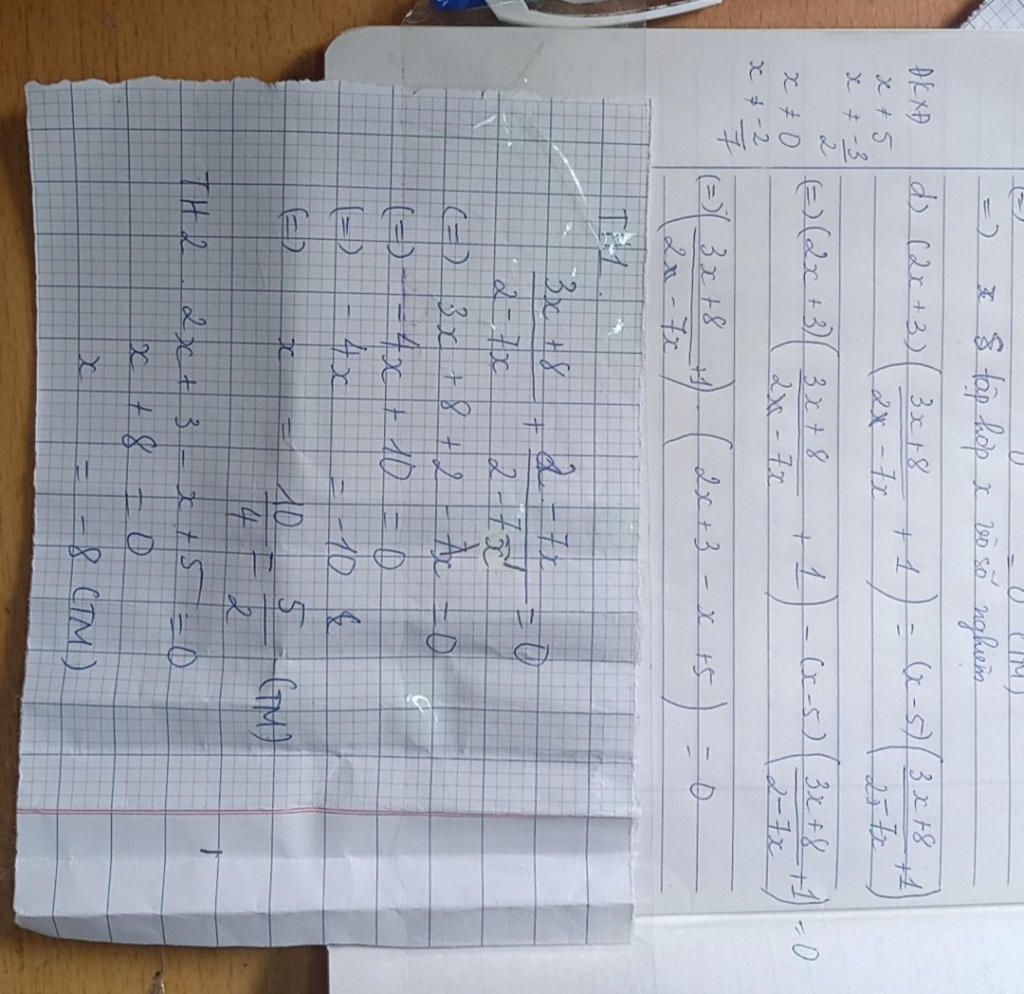 (=)
= 0 (TM)
=) x § tập hợp x vô số nghiệm
d) (2x + 3) (3x + 8 / 2x - 7x + 1) = (x - 5) (3x + 8 / 2 - 7x + 1)
(=) (2x + 3) (3x + 8 / 2x - 7x + 1) - (x - 5) (3x + 8 / 2 - 7x + 1) = 0
(=) (3x + 8 / 2x - 7x + 1) . (2x + 3 - x + 5) = 0
ĐKXĐ
x ≠ 5
x ≠ -3/2
x ≠ 0
x ≠ -2/7
TH1.
3x + 8 / 2 - 7x + 2 - 7x / 2 - 7x = 0
(=) 3x + 8 + 2 - 7x = 0
(=) - 4x + 10 = 0
(=) - 4x = - 10
(=) x = 10/4 = 5/2 (TM)
TH2. 2x + 3 - x + 5 = 0
x + 8 = 0
x = - 8 (TM)